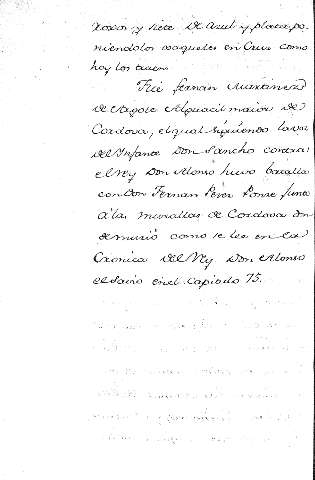 roxos y siete De Azul y plata, po
niendolos roqueles en Cruz como
hoy los traen.
Fue fernan Muntanes
de Argote Alguacil maior De
Cordova, el qual siguiendo la voz
Del Infante Don Sancho contra
el Rey Don Alonso huvo batalla
con Don Fernan Perez Ponze junto
â las murallas de Cordova don
de murió como se lee en la
Cronica Del Rey Don Alonso
el Savio en el Capitulo 75.